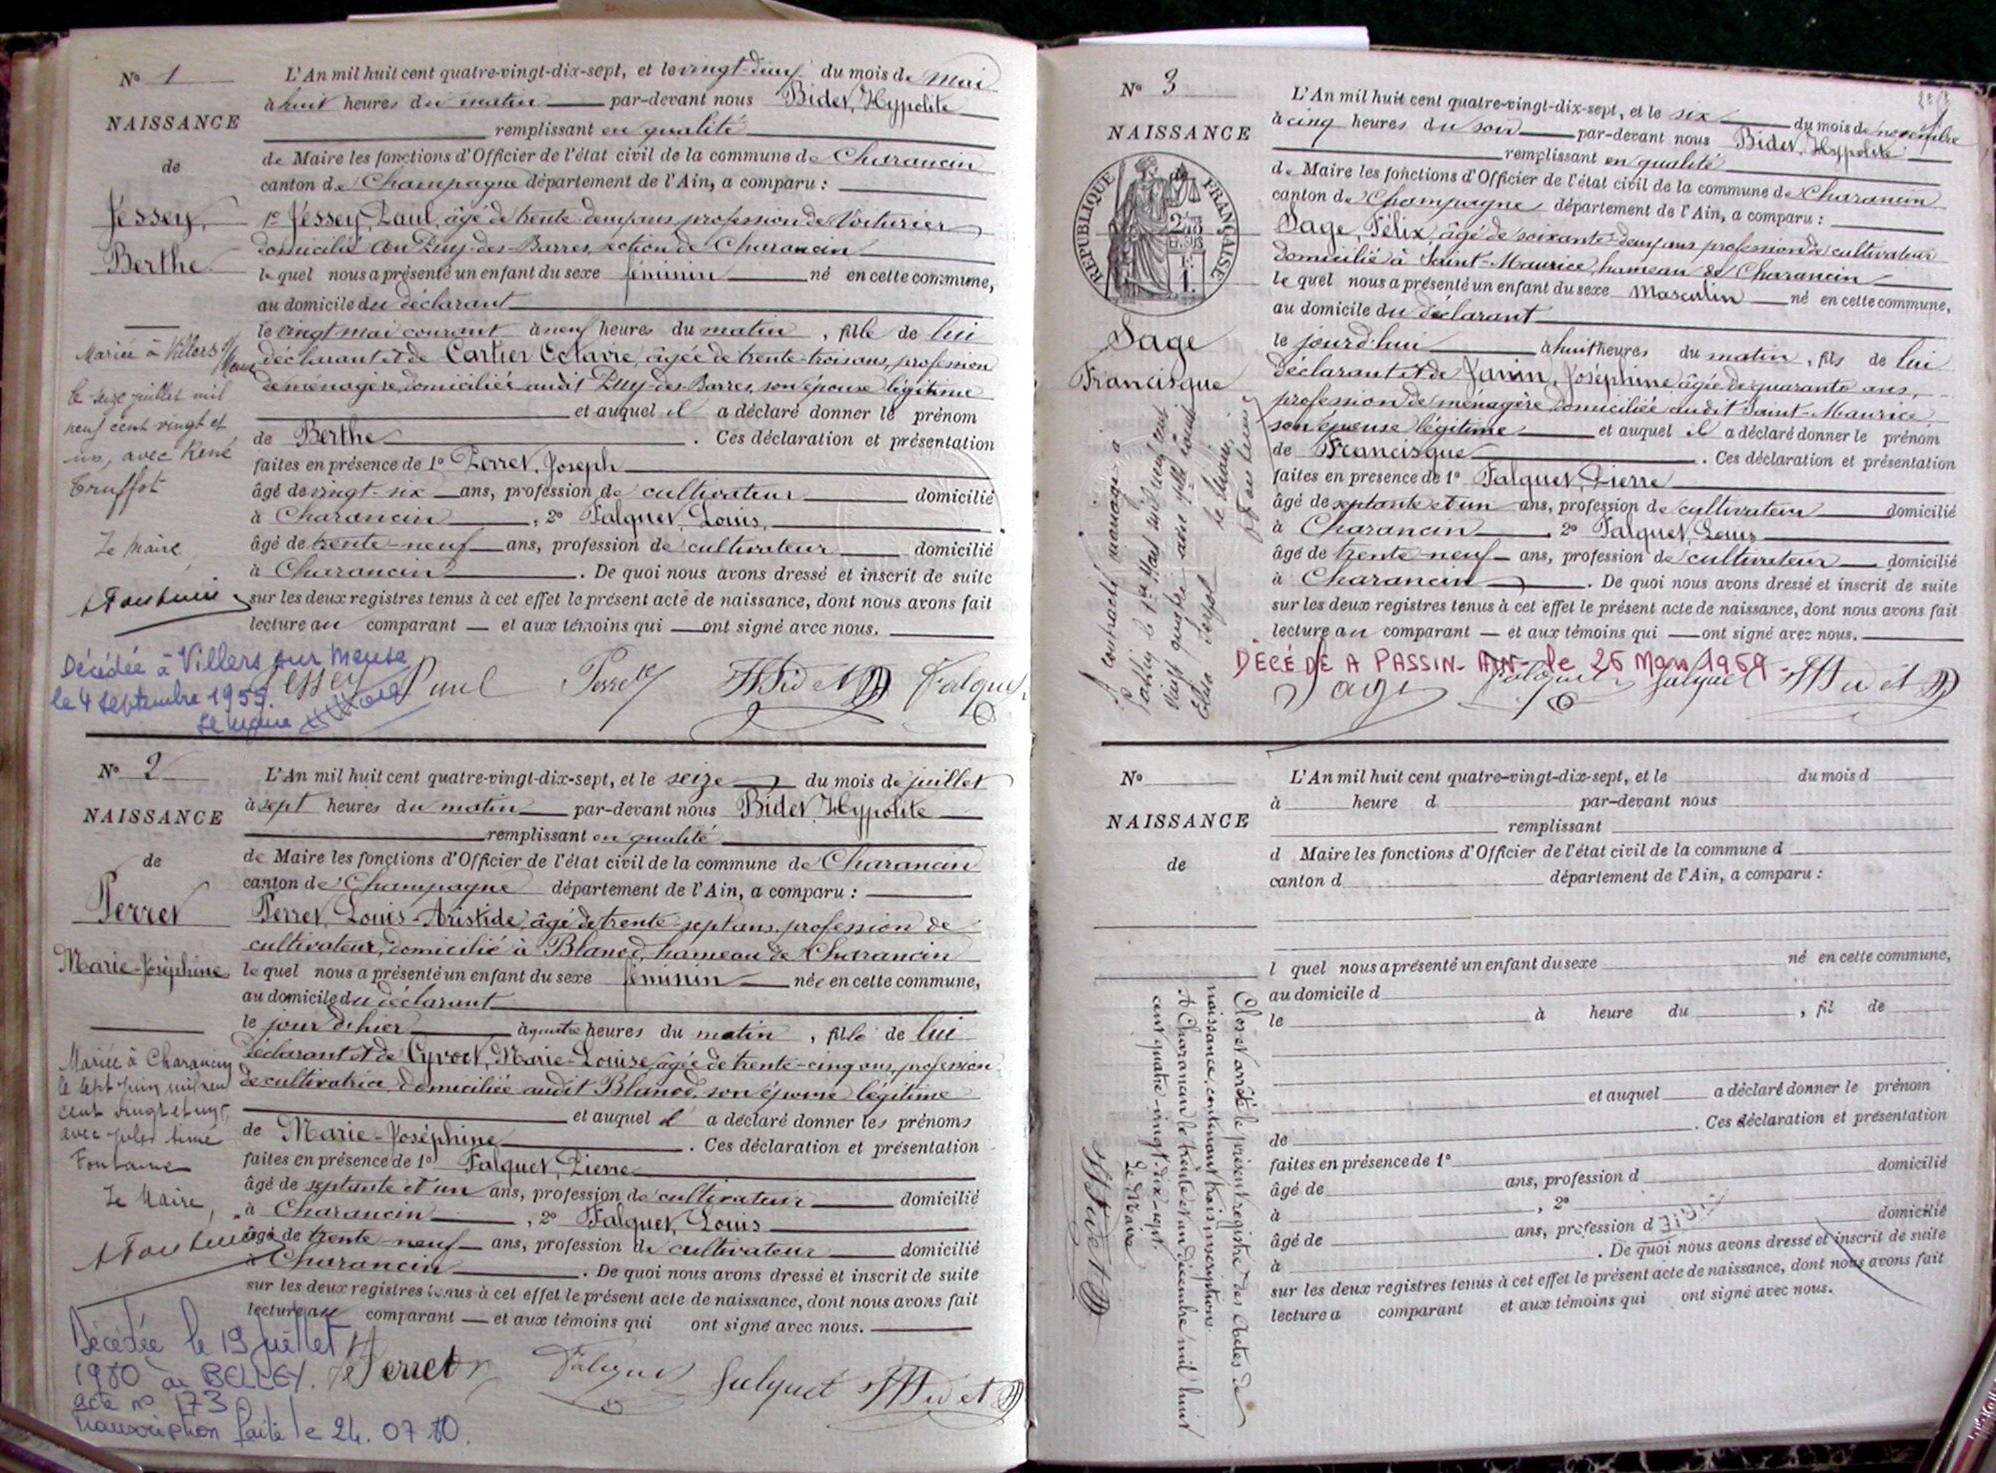 N° 1
NAISSANCE
de
Jessey,
Berthe
L'An mil huit cent quatre-vingt-dix-sept, et le vingt-deux du mois de Mai
à huit heures du matin par-devant nous Bidet, Hypolite
remplissant en qualité
de Maire les fonctions d'Officier de l'état civil de la commune de Charancin
canton de Champagne département de l'Ain, a comparu :
1° Jessey, Paul, âgé de trente-deux ans, profession de Voiturier
domicilié au Puy-des-Barres, section de Charancin
le quel nous a présenté un enfant du sexe féminin né en cette commune,
au domicile du déclarant
le vingt mai courant à neuf heures du matin, fille de lui
déclarant et de Cartier Octavie, âgée de trente-trois ans, profession
de ménagère, domiciliée audit Puy-des-Barres, son épouse légitime
et auquel il a déclaré donner le prénom
de Berthe. Ces déclaration et présentation
faites en présence de 1° Perret, Joseph
âgé de vingt-six ans, profession de cultivateur domicilié
à Charancin, 2° Falquet, Louis,
âgé de trente-neuf ans, profession de cultivateur domicilié
à Charancin. De quoi nous avons dressé et inscrit de suite
sur les deux registres tenus à cet effet le présent acte de naissance, dont nous avons fait
lecture au comparant et aux témoins qui ont signé avec nous.
Mariée à Villers s/
Meuse
le seize juillet mil
neuf cent vingt et
un, avec René
Truffot
Le Maire,
Décédée à Villers sur Meuse
le 4 septembre 1955.
Jessey Paul Perret HBidet Falquet
N° 2
NAISSANCE
de
Perret
Marie-Joséphine
L'An mil huit cent quatre-vingt-dix-sept, et le seize du mois de juillet
à sept heures du matin par-devant nous Bidet, Hypolite
remplissant en qualité
de Maire les fonctions d'Officier de l'état civil de la commune de Charancin
canton de Champagne département de l'Ain, a comparu :
Perret, Louis-Aristide, âgé de trente-sept ans, profession de
cultivateur, domicilié à Blanod, hameau de Charancin
le quel nous a présenté un enfant du sexe féminin née en cette commune,
au domicile du déclarant
le jour d'hier à quatre heures du matin, fille de lui
déclarant et de Cyvoct, Marie-Louise, âgée de trente-cinq ans, profession
de cultivatrice, domiciliée audit Blanod, son épouse légitime
et auquel il a déclaré donner les prénoms
de Marie-Joséphine. Ces déclaration et présentation
faites en présence de 1° Falquet, Pierre
âgé de septante et un ans, profession de cultivateur domicilié
à Charancin, 2° Falquet, Louis
âgé de trente-neuf ans, profession de cultivateur domicilié
à Charancin. De quoi nous avons dressé et inscrit de suite
sur les deux registres tenus à cet effet le présent acte de naissance, dont nous avons fait
lecture au comparant et aux témoins qui ont signé avec nous.
Mariée à Charancin
le sept juin mil neuf
cent vingt et un,
avec Jules
Fontaine
Le Maire,
Décédée le 19 juillet
1980 à BELLEY.
acte n° 173
transcription faite le 24.07.80.
Perret Falquet Falquet HBidet
N° 3
NAISSANCE
RÉPUBLIQUE FRANÇAISE
Sage
Francisque
L'An mil huit cent quatre-vingt-dix-sept, et le six du mois de novembre
à cinq heures du soir par-devant nous Bidet, Hypolite
remplissant en qualité
de Maire les fonctions d'Officier de l'état civil de la commune de Charancin
canton de Champagne département de l'Ain, a comparu :
Sage, Félix, âgé de soixante-deux ans, profession de cultivateur
domicilié à Saint-Maurice, hameau de Charancin
le quel nous a présenté un enfant du sexe Masculin né en cette commune,
au domicile du déclarant
le jourd'hui à huit heures du matin, fils de lui
déclarant et de Janin, Joséphine, âgée de quarante ans,
profession de ménagère, domiciliée audit Saint-Maurice
son épouse légitime et auquel il a déclaré donner le prénom
de Francisque. Ces déclaration et présentation
faites en présence de 1° Falquet, Pierre
âgé de septante et un ans, profession de cultivateur domicilié
à Charancin. 2° Falquet, Louis
âgé de trente neuf ans, profession de cultivateur domicilié
à Charancin. De quoi nous avons dressé et inscrit de suite
sur les deux registres tenus à cet effet le présent acte de naissance, dont nous avons fait
lecture au comparant et aux témoins qui ont signé avec nous.
A contracté mariage à
le 1er Mars mil neuf cent
vingt quatre avec
Le Maire,
DÉCÉDÉ A PASSIN - AIN - le 26 Mars 1969
Sage Falquet Falquet HBidet
N°
NAISSANCE
de
L'An mil huit cent quatre-vingt-dix-sept, et le du mois d
à heure d par-devant nous
remplissant
d Maire les fonctions d'Officier de l'état civil de la commune d
canton d département de l'Ain, a comparu :
l quel nous a présenté un enfant du sexe né en cette commune,
au domicile d
le à heure du , fil de
et auquel a déclaré donner le prénom
de . Ces déclaration et présentation
faites en présence de 1°
âgé de ans, profession d domicilié
à , 2°
âgé de ans, profession d domicilié
à . De quoi nous avons dressé et inscrit de suite
sur les deux registres tenus à cet effet le présent acte de naissance, dont nous avons fait
lecture a comparant et aux témoins qui ont signé avec nous.
Clos et arrêté le présent registre des actes de
naissance, contenant trois inscriptions.
A Charancin le trente et un décembre mil huit
cent quatre-vingt-dix-sept.
Le Maire
HBidet